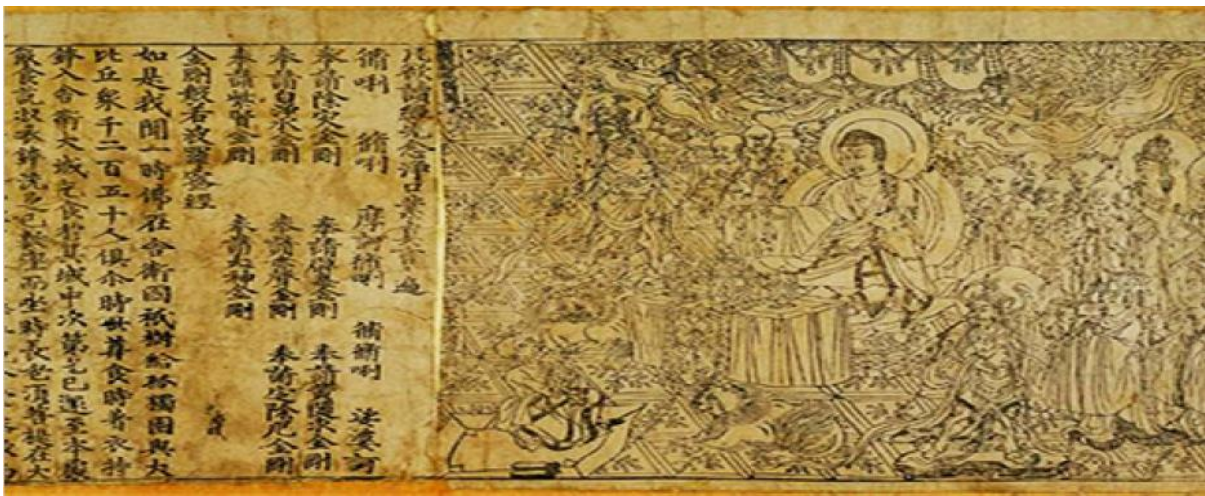 凡欲讀經先念淨口業真言 遍
脩唎 脩唎 摩訶脩唎 脩脩唎 娑婆訶
奉請除灾金剛 奉請辟毒金剛 奉請黃隨求金剛
奉請白淨水金剛 奉請赤聲金剛 奉請定除厄金剛
奉請紫賢金剛 奉請大神金剛
金剛般若波羅蜜經
如是我聞一時佛在舍衛國祇樹給孤獨園與大
比丘衆千二百五十人俱尒時世尊食時著衣持
鉢入舍衛大城乞食於其城中次第乞已還至本處
飯食訖収衣鉢洗足已敷座而坐時長老須菩提在大